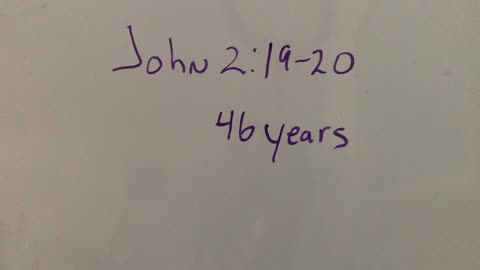 John 2:19-20
46 years